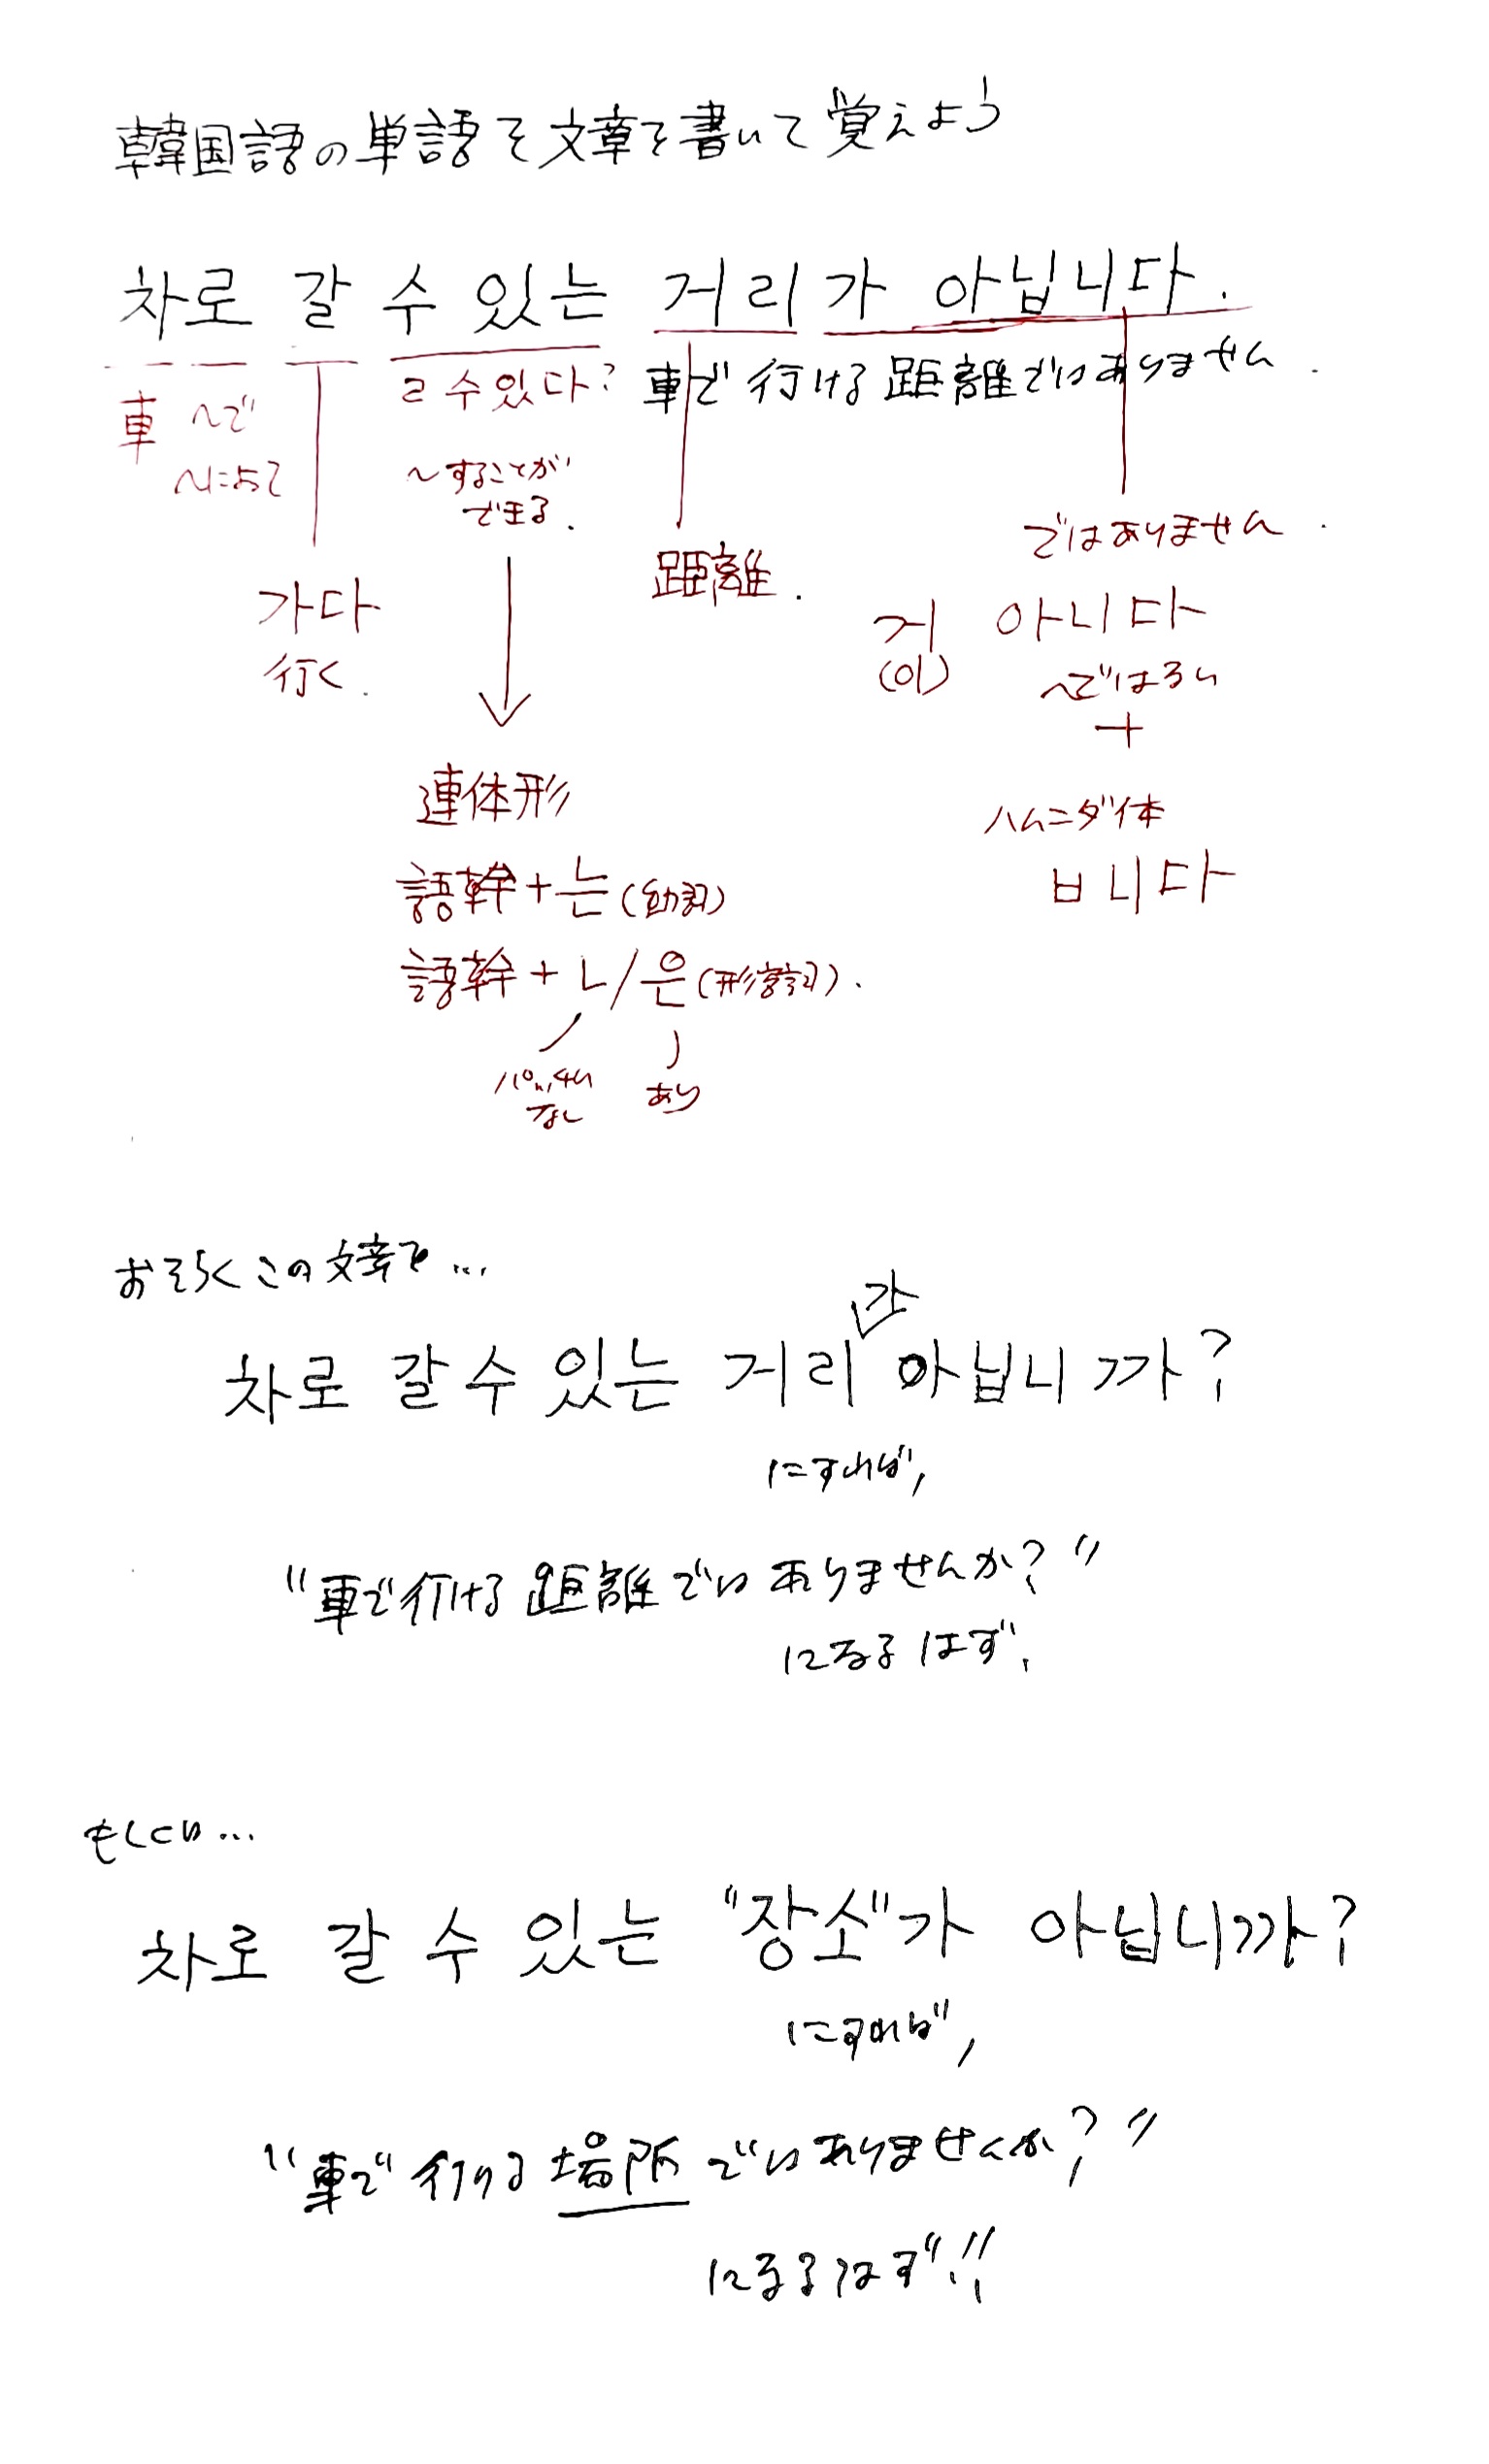 韓国語の単語を文章を書いて覚えよう
차로 갈 수 있는 거리가 아닙니다.
車で行ける距離ではありません.
車 ～で
～によって
ㄹ 수 있다?
～することが
できる.
가다
行く.
距離.
ではありません.
거 아니다
(이) ～ではない
+
ハムニダ体
ㅂ니다
連体形
語幹+는(動詞)
語幹+ㄴ/은(形容詞).
パッチム
なし
あり
おそらくこの文章で...
가
차로 갈 수 있는 거리 아닙니까?
にすれば,
"車で行ける距離ではありませんか?"
になるはず.
もしくは...
차로 갈 수 있는 "장소"가 아닙니까?
にすれば,
"車で行ける場所ではありませんか?"
になるはず!!